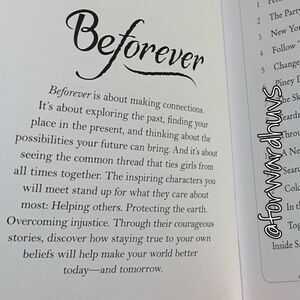 Beforever
Beforever is about making connections.
It's about exploring the past, finding your
place in the present, and thinking about the
possibilities your future can bring. And it's about
seeing the common thread that ties girls from
all times together. The inspiring characters you
will meet stand up for what they care about
most: Helping others. Protecting the earth.
Overcoming injustice. Through their courageous
stories, discover how staying true to your own
beliefs will help make your world better
today—and tomorrow.
1
2 The Party
3 New York
4 Follow
5 Change
Piney
The
A Ne
Sear
Cold
In the
Tog
Inside Sa
@forwardhuvs